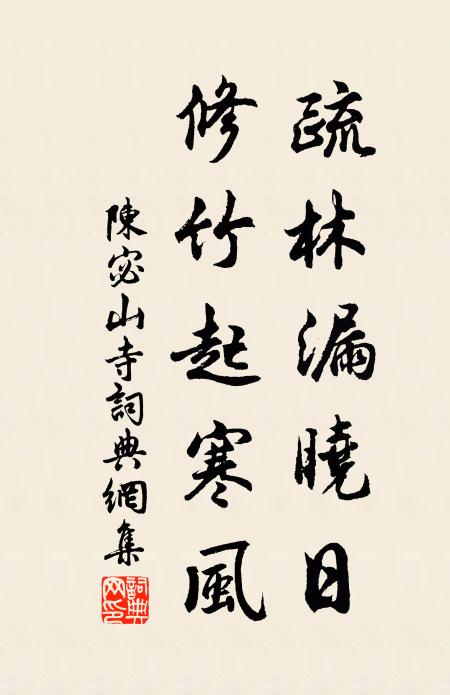 疏林漏曉日
修竹起寒風
陳宓山寺詞典網集
詞典网印